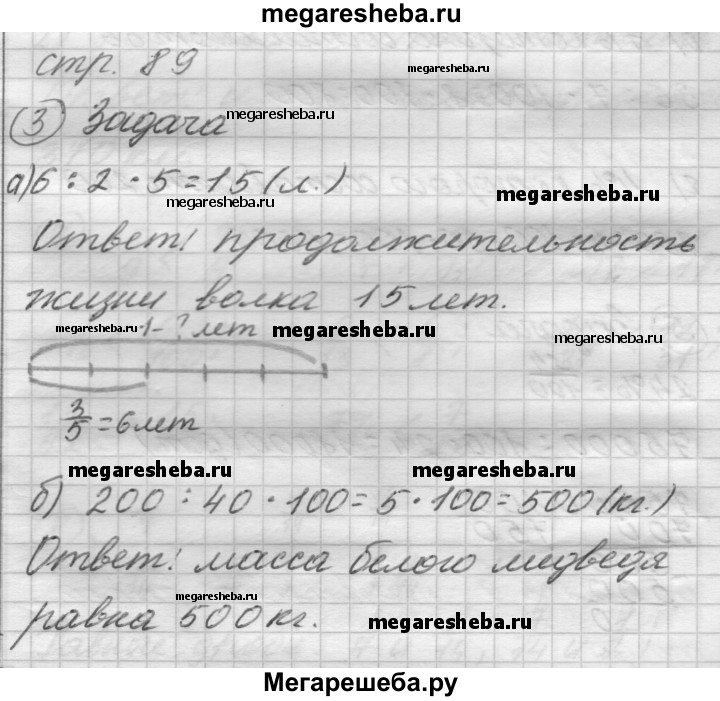 megaresheba.ru
стр. 89
megaresheba.ru
③ Задача
megaresheba.ru
а) 6 : 2 · 5 = 15 (л.)
megaresheba.ru
megaresheba.ru
Ответ: продолжительность
жизни волка 15 лет.
megaresheba.ru
1 - ? лет
megaresheba.ru
megaresheba.ru
3/5 = 6 лет
megaresheba.ru
megaresheba.ru
б) 200 : 40 · 100 = 5 · 100 = 500 (кг.)
Ответ: масса белого медведя
megaresheba.ru
равна 500 кг.
megaresheba.ru
Мегарешеба.ру